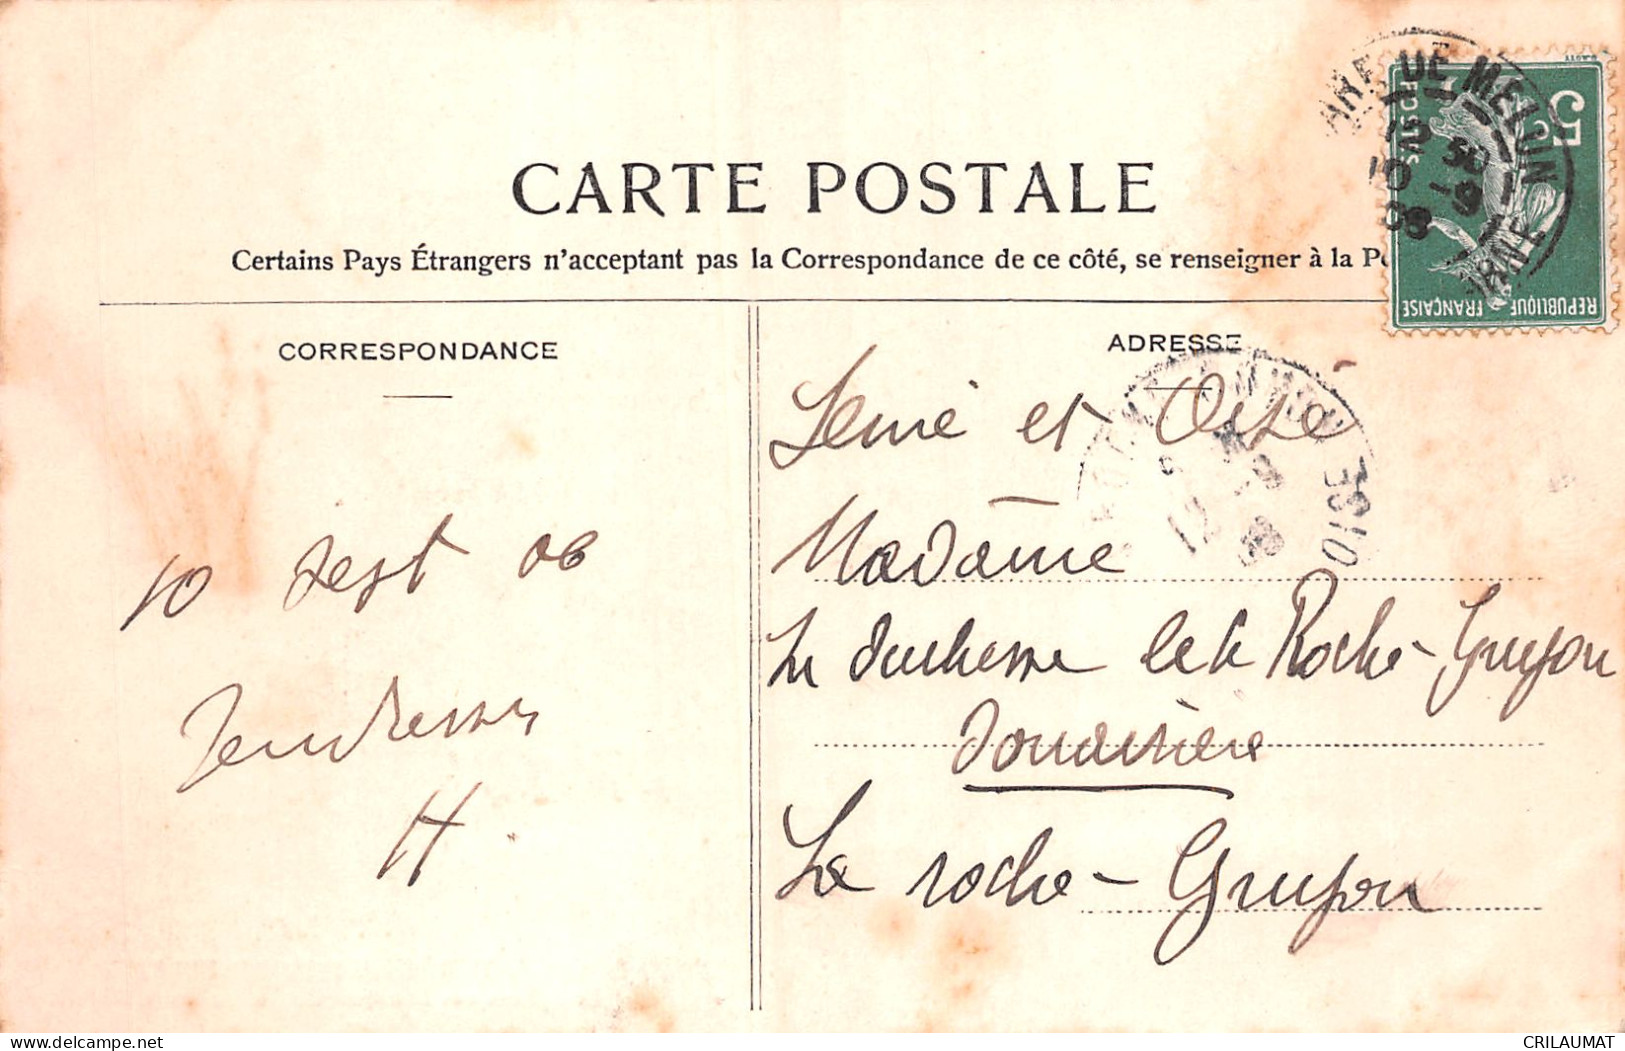 CARTE POSTALE
Certains Pays Étrangers n'acceptant pas la Correspondance de ce côté, se renseigner à la P
CORRESPONDANCE
ADRESSE
5
POSTES
REPUBLIQUE FRANÇAISE
DE MELUN
OISE
Seine et Oise
Madame
La duchesse de la Roche-Guyon
Douairière
La roche-Guyon
10 sept 08
Tendresses
H.
delcampe.net
CRILAUMAT